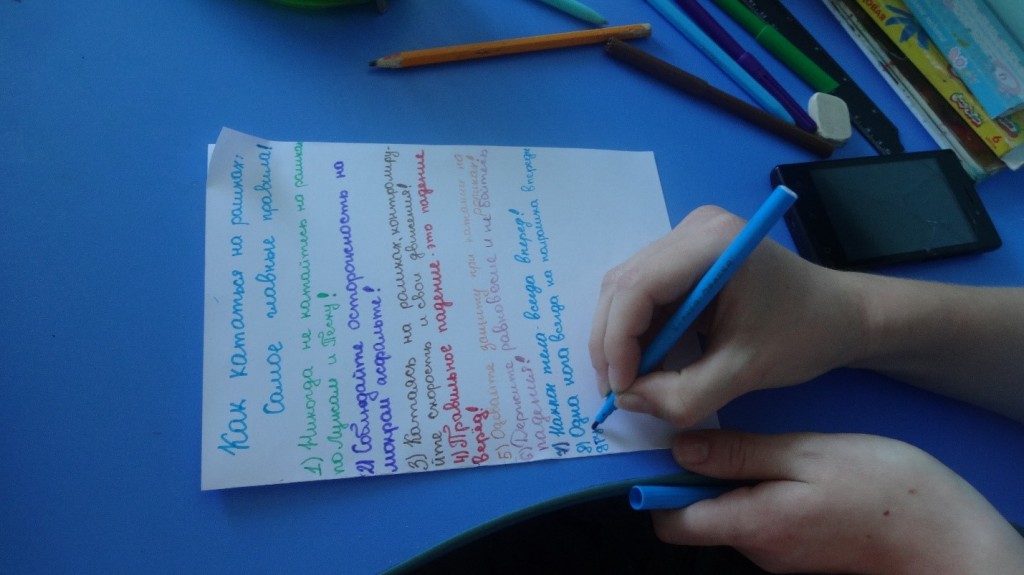 Как кататься на роликах.
Самое главные правила!
1) Никогда не катайтесь на роликах
по лужам и песку!
2) Соблюдайте осторожность на
мокрам асфальте!
3) Катаясь на роликах, контролиру-
йте скорость и свои движения!
4) Правильное падение - это падение
вперёд!
5) Одевайте защиту при катании на
роликах!
6) Держите равновесие и не бойтесь
падения!
7) Наклон тела всегда вперед!
8) Одна нога всегда на полшага впереди